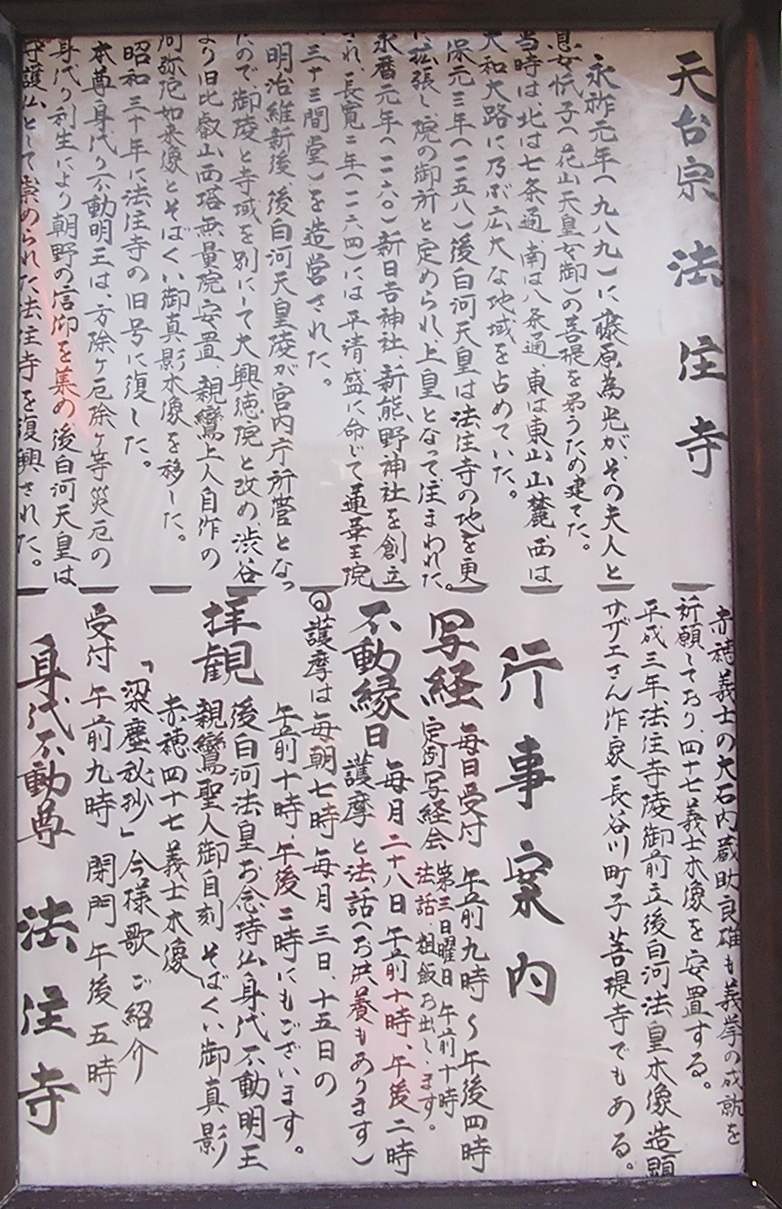 天台宗 法住寺
永祚元年(九八九)に藤原為光が、その夫人と
息女忯子(花山天皇女御)の菩提を弔うため建てた。
当時は、北は七条通、南は八条通、東は東山山麓、西は
大和大路に乃ぶ広大な地域を占めていた。
保元三年(一一五八)後白河天皇は法住寺の地を更
に拡張し院の御所と定められ、上皇となって住まわれた。
永暦元年(一一六〇)新日吉神社、新熊野神社を創立
され、長寛二年(一一六四)には平清盛に命じて蓮華王院
(三十三間堂)を造営された。
明治維新後 後白河天皇陵が宮内庁所管となっ
たので、御陵と寺域を別にして大興徳院と改め、渋谷
より旧比叡山西塔無量院安置、親鸞上人自作の
阿弥陀如来像とそばくい御真影木像を移した。
昭和三十年に法住寺の旧号に復した。
本尊身代り不動明王は、方除ケ厄除ケ等災厄の
身代り利生により朝野の信仰を集め後白河天皇は
守護仏として崇められた法住寺を復興された。
赤穂義士の大石内蔵助良雄も義挙の成就を
祈願しており、四十七義士木像を安置する。
平成三年法住寺陵御前立後白河法皇木像造顕
サザエさん作家長谷川町子菩提寺でもある。
行事案内
写経 毎日受付 午前九時〜午後四時
定例写経会 第三日曜日 午前十時
法話・粗飯お出します。
不動縁日 毎月二十八日 午前十時、午後二時
護摩と法話(お供養もあります)
◎護摩は毎朝七時 毎月三日、十五日の
午前十時、午後二時にもございます。
拝観 後白河法皇お念持仏身代不動明王
親鸞聖人御自刻 そばくい御真影
赤穂四十七義士木像
「梁塵秘抄」今様歌ご紹介
受付 午前九時 閉門 午後五時
身代不動尊 法住寺